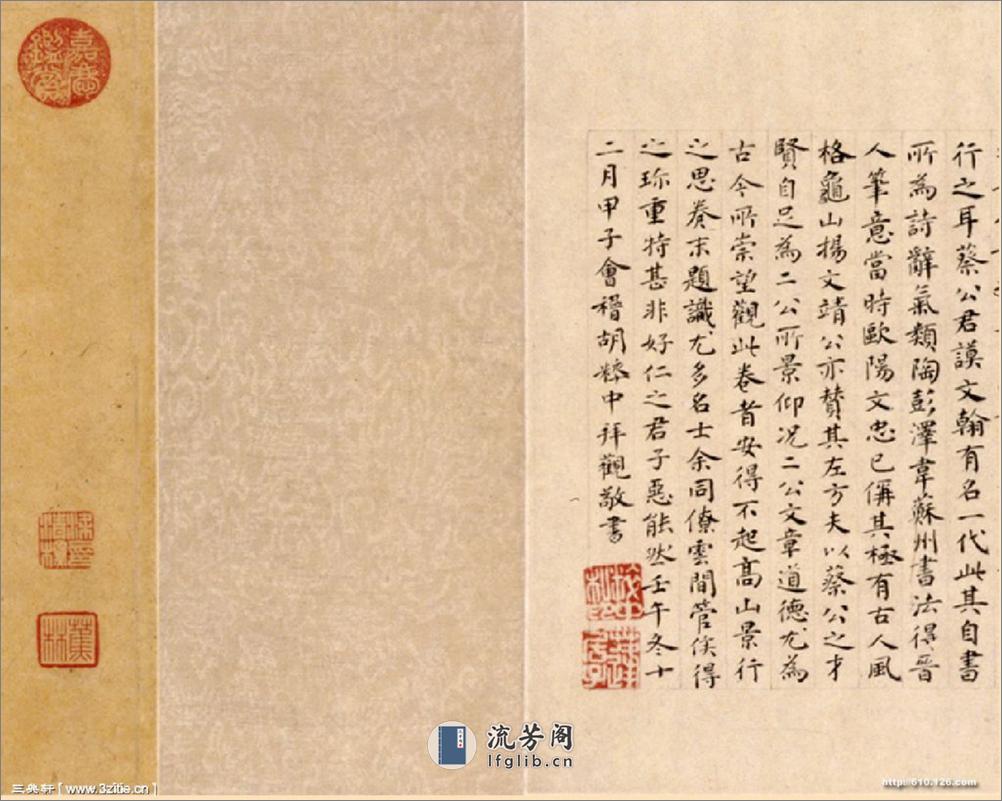 行之耳蔡公君謨文翰有名一代此其自書
所為詩辭氣類陶彭澤韋蘇州書法得晉
人筆意當時歐陽文忠已稱其極有古人風
格龜山楊文靖公亦贊其左方夫以蔡公之才
賢自足為二公所景仰况二公文章道德尤為
古今所崇望觀此卷者安得不起高山景行
之思卷末題識尤多名士余同僚雲間管侯得
之珎重特甚非好仁之君子惡能然壬午冬十
二月甲子會稽胡粹中拜觀敬書
嘉慶
鑑賞
蕉林
流芳阁
lfglib.cn
三典轩【www.3zitie.cn】
http://610.126.com/